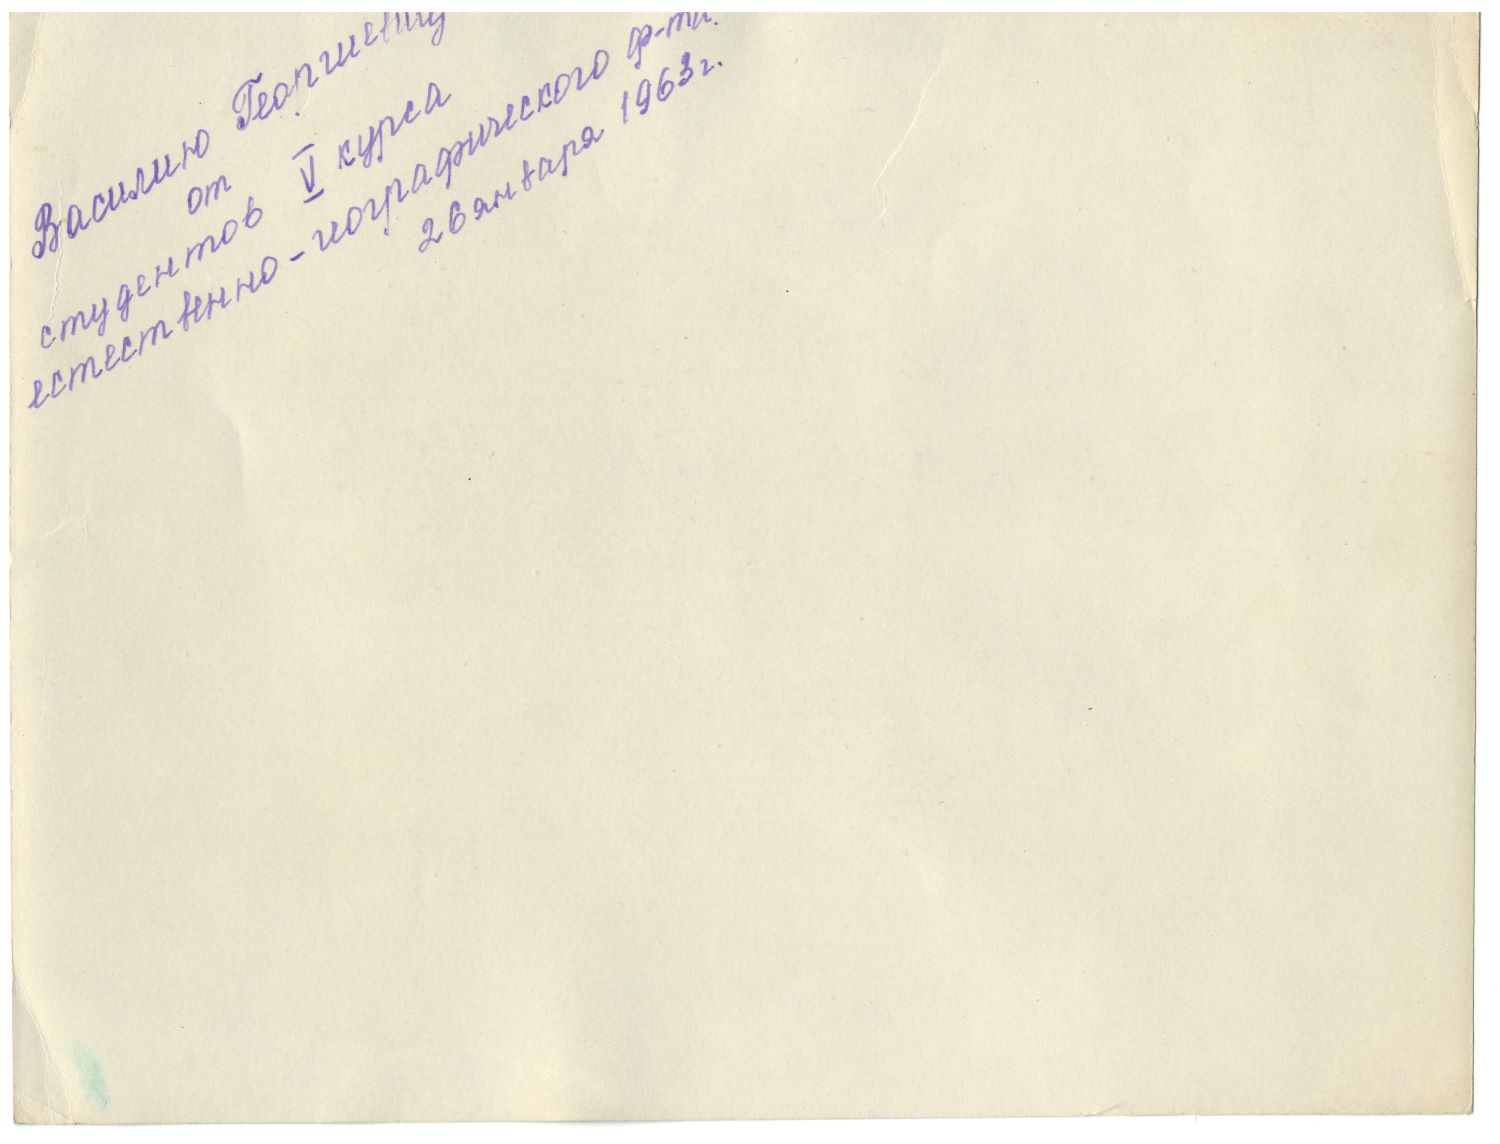 Василию Георгиевичу
от
студентов V курса
естественно-географического ф-та.
26 января 1963 г.